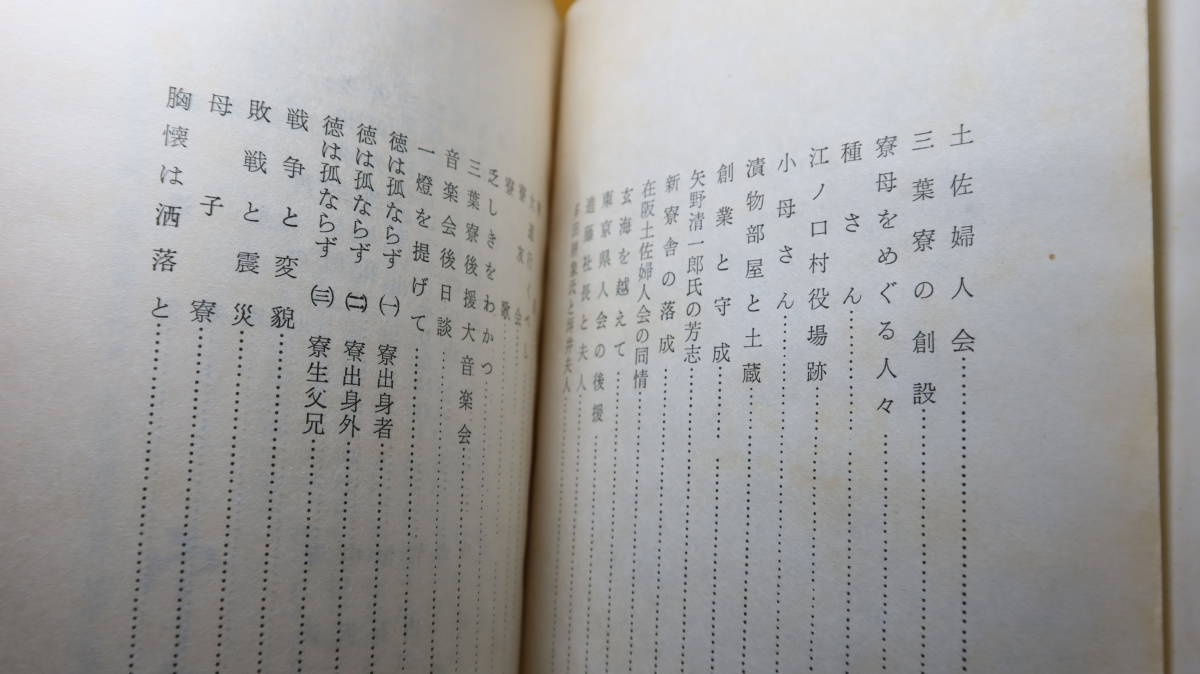 土佐婦人会
三葉寮の創設
寮母をめぐる人々
種さん
江ノ口村役場跡
小母さん
漬物部屋と土蔵
創業と守成
矢野清一郎氏の芳志
新寮舎の落成
在阪土佐婦人会の同情
玄海を越えて
東京県人会の後援
遠藤社長と夫人
氏と
夫人
寮友会
寮歌
乏しきをわかつ
三葉寮後援大音楽会
音楽会後日談
一燈を提げて
徳は孤ならず ㈠ 寮出身者
徳は孤ならず ㈡ 寮出身外
徳は孤ならず ㈢ 寮生父兄
戦争と変貌
敗戦と震災
母子寮
胸懐は洒落と